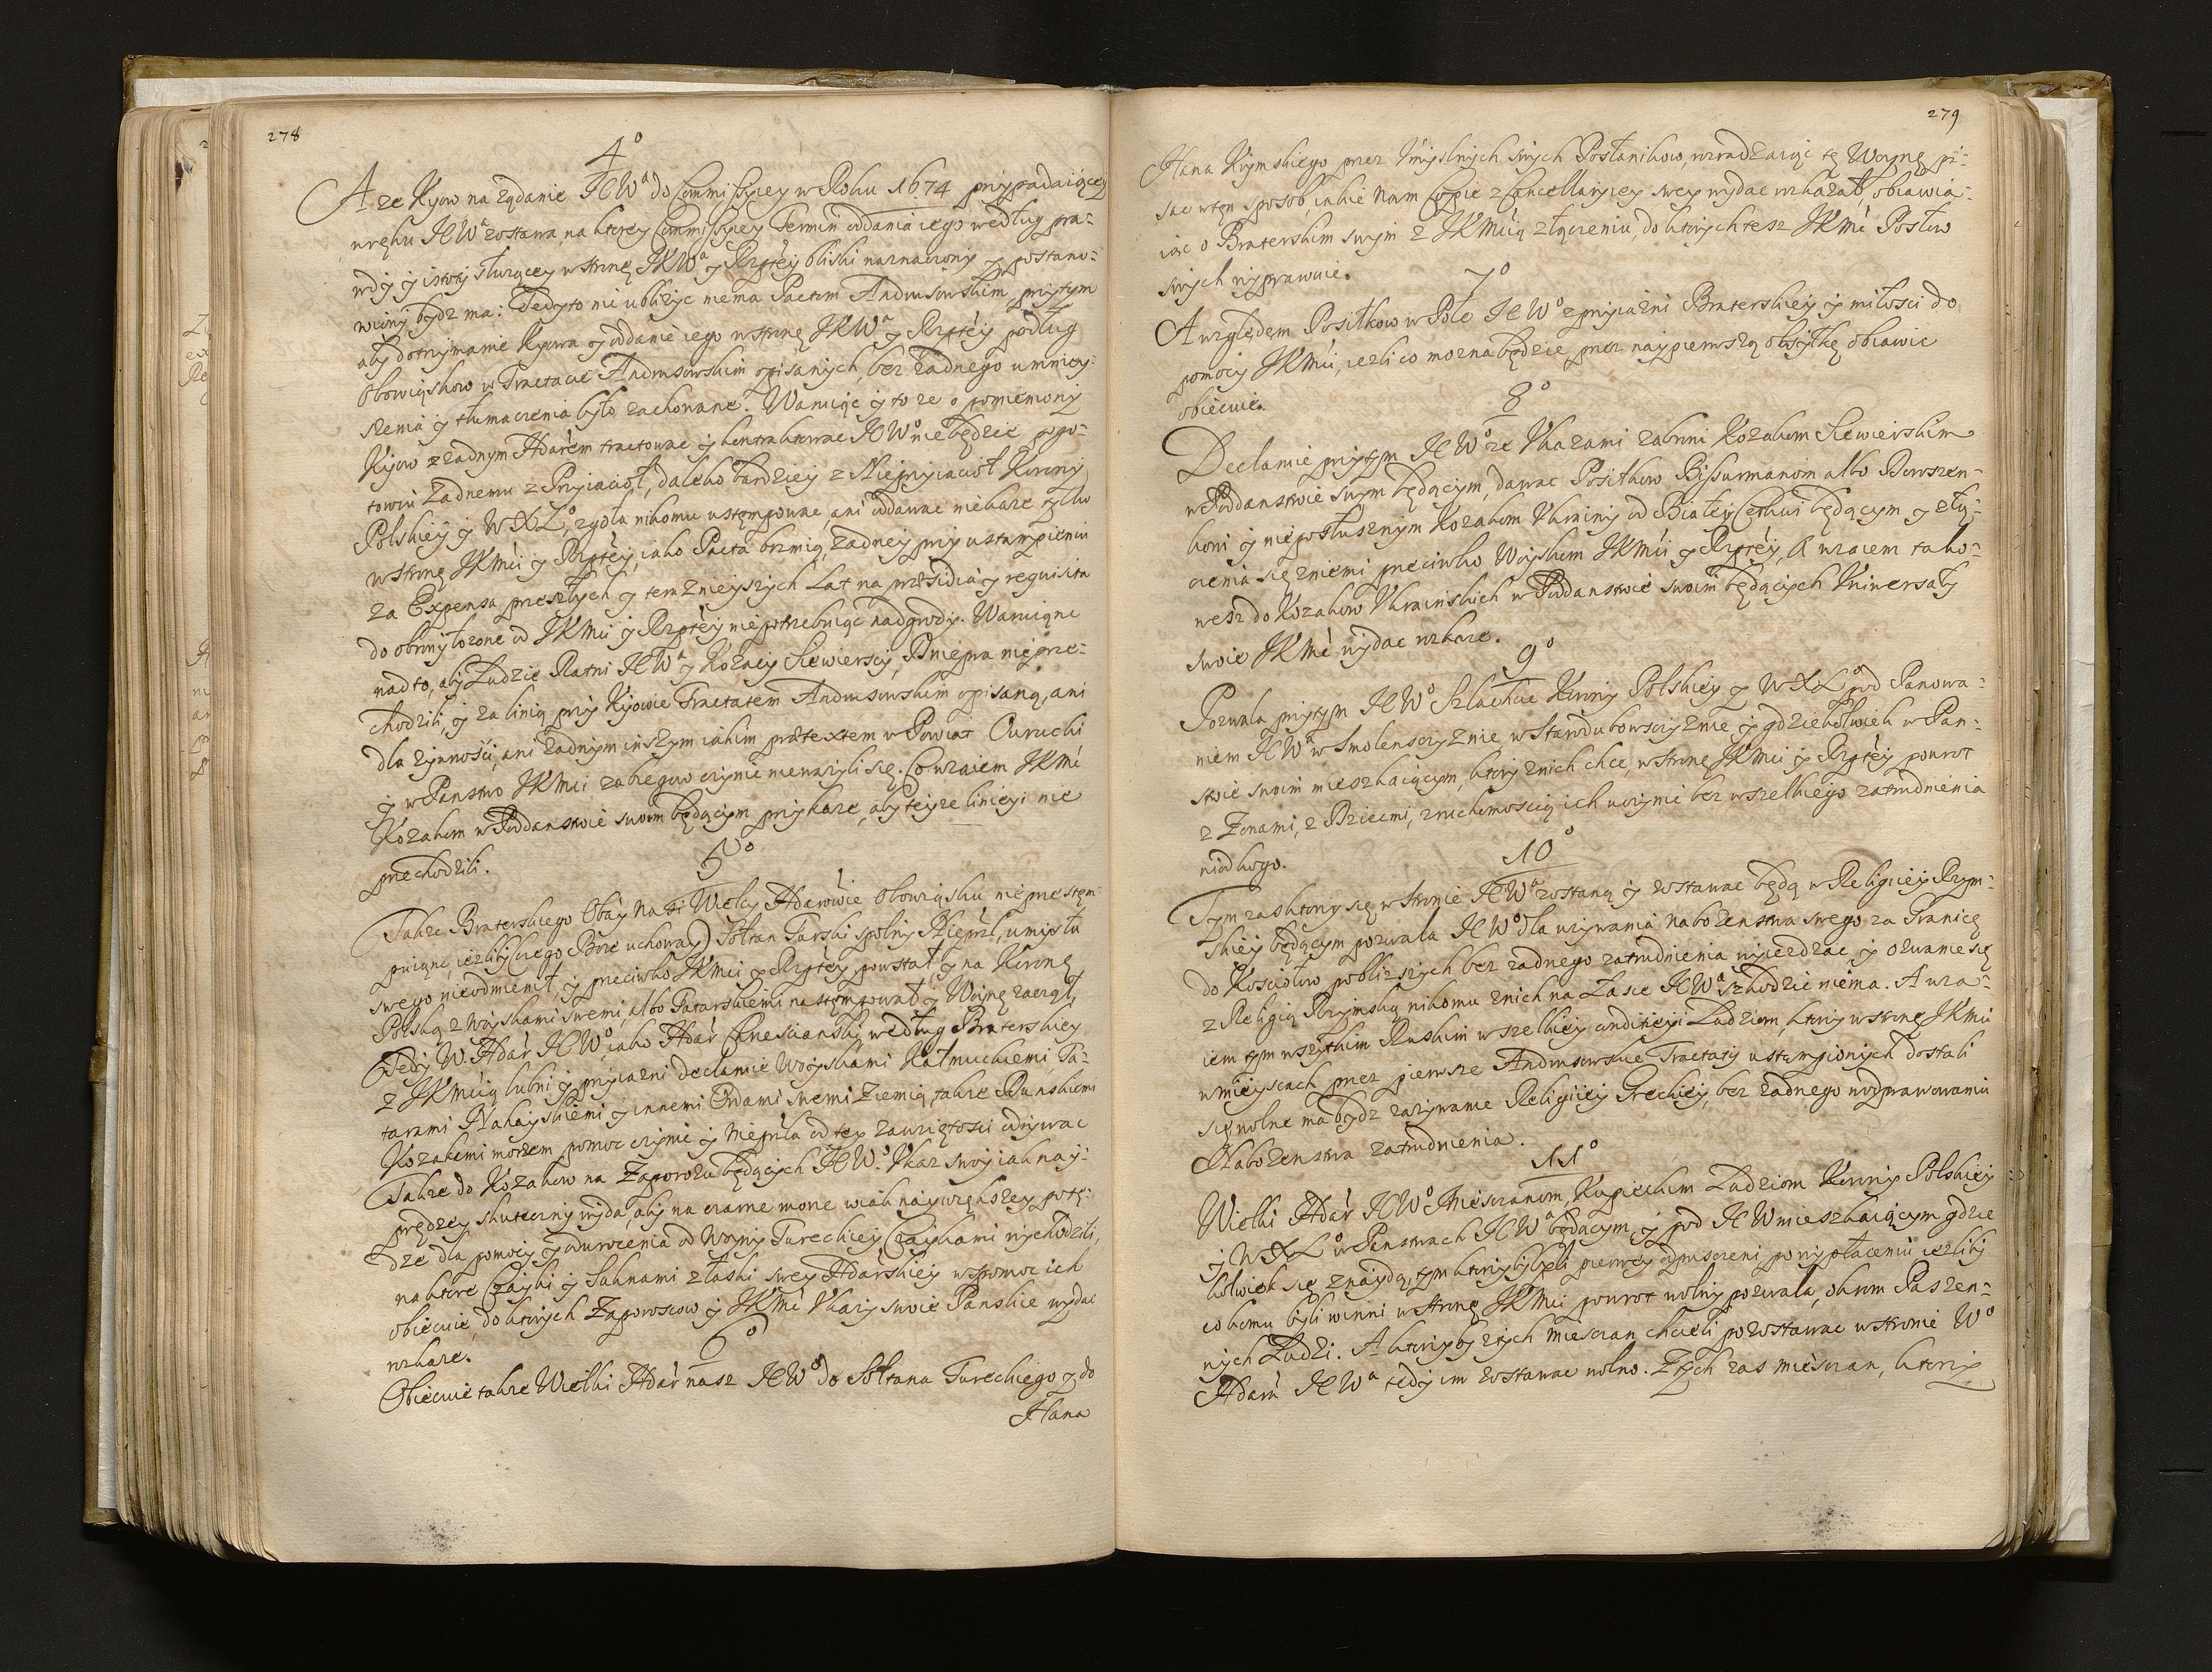 278
4º
A ze Kyow na ządanie JCWª do Commissyey w Roku 1674 przypadaiącey
w ręku JCWª zostawa, na ktorey Commissyey Termin oddania iego według pra-
wdy y istoty służącey w stronę JKWª y Rzptèy bliski naznaczony y postano-
wiony bydz ma: Tedy to nie ubliżyc nema Pactom Andruszowskim przytym
aby dotrzymanie Kyowa y oddanie iego w stronę JKWª y Rzptèy podług
obowiąskow w Tractacie Andruszowskim opisanych, bez żadnego umniey-
szenia y tłumaczenia było zachowane. Waruiąc y to ze o pomieniony
Kyow z zadnym Hdarèm tractowac y kontraktowac JCWº nie będzie y go-
towiu żadnemu z Przyiacioł, daleko bardziey z Nieprzyiacioł Korony
Polskiey y WXLº, zgoła nikomu ustępowac, ani oddawac niekaze tylko
w stronę JKMći y Rzptèy, iako Pacta brzmią, żadney przy ustąpieniu
za Expensa przeszłych y teraznieyszych Lat na præsidia y requisita
do obrony łozone od JKMći y Rzptèy nie potrzebuiąc nadgrody. Waruiąc
nadto, aby Ludzie Ratni JCWª y Kozacy Siewierscy, Dniepra nieprze-
chodzili, y za linią przy Kyowie Tractatem Andruszowskim opisaną, ani
dla żywności, ani żadnym inszym iakim prætextem w Powiat Owrucki
y w Panstwo JKMći zabiegow czynic nieważyli się. Co wzaiem JKMć
Kozakom w Poddanstwie swoim będącym przykaze, aby teyze linieyi nie
przechodzili.
5º
Takze Braterskiego Obay Nasi Wielcy Hdarowie obowiąsku nieprzestęm-
puiąc, iezliby (czego Boze uchoway) Sołtan Turski spolny Nieprzyl, umysłu
swego nieodmienił, y przeciwko JKMći y Rzptèy powstał y na Koronę
Polską z woyskami swemi, albo Tatarskiemi następował y Woynę zaczął,
Tedy W. Hdàr JCWº, iako Hdàr Chrescianski według Braterskiey
z JKMcią lubwi y przyiazni declaruie Woyskami Kałmuckiemi, Ta-
tarami Nahayskiemi y innemi Ordami swemi Ziemią, takze Dunskiemi
Kozakami morzem pomoc czynic y Nieprzla od tey zawziętosci odrywac
Takze do Kozakow na Zaporozu będących JCWº Ukaz swoy iak nay-
prędzey skuteczny wyda, aby na czarne morze wiak naywiększey potę-
dze dla pomocy y odwrocenia od Woyny Tureckiey, Czaykami wychodzili,
na ktore Czayki y Suknami z łaski swey Hdarskiey wspomoc ich
obiecuie, do ktorych Zaporoscow y JKMć Ukazy swoie Panskie wydac
wzkaze.
6º
Obiecuie takze Wielki Hdàr nasz JCWº do Sołtana Tureckiego y do
Hana
279
Hana Krymskiego przez Umyslnych swych Posłanikow, rozradzaiąc tę Woynę pi-
sac w ten sposob, iakie Nam Copie z Cancellaryey swey wydac wzkazał, obiawia-
iąc o Braterskim swym z JKMcią złączeniu, do ktorych tesz JKMć Posłow
swych wyprawuie.
7º
A względem Posiłkow w Pole JCWº z przyiazni Braterskiey y miłosci do
pomocy JKMći, iezli co mozna będzie, przez naypierwszą obsyłkę obiawic
obiecuie.
8º
Declaruie przytym JCWº ze Ukazami zabroni Kozakom Siewierskim
w Poddanstwie swym będącym, dawac Posiłkow Bissurmanom albo Doroszen-
kowi y nieposłusznym Kozakom Ukrainy od Białey Cerkwi będącym y złą-
czenia się zniemi przeciwko Woyskom JKMći y Rzptèy, A wzaiem tako-
wesz do Kozakow Ukrainskich w Poddanstwie swoim będących Uniwersały
swoie JKMć wydac wzkaze.
9º
Pozwala przytym JCWº Szlachcie Korony Polskiey y WXLº pod Panowa-
niem JCWª w Smolensczyznie, w Starodubowsczyznie y gdziekolwiek w Pan-
stwie swoim mieszkaiącym, ktorzy znich chce, w stronę JKMći y Rzptèy powrot
z Zonami, z Dziecmi, z ruchomoscią ich uczynic bez wszelkiego zatrudnienia
niodkogo.
10º
Tym zas ktorzy się w stronie JCWª zostaną y zostawac będą w Religiiey Rzym-
skiey będącym pozwala JCWº dla uzywania nabozenstwa swego za Granicę
do Kosciołow pobliszych bez zadnego zatrudnienia wyiezdzac y ozwanie się
z Religią Rzymską nikomu znich na Łasce JCWª szkodzic niema. A wza-
iem tym wszytkim Ruskim wszelkiey condicieyi Ludziom, ktorzy w stronę JKMći
w mieyscach przez pierwsze Andruszowskie Tractaty ustąpionych dostali
się wolne ma bydz zazywanie Religiiey Greckiey, bez zadnego w odprawowaniu
Nabozenstwa zatrudnienia.
11º
Wielki Hdàr JCWº Miesczanom, Kupieckim Ludziom Korony Polskiey
y WXLº w Panstwach JCWª będącym, y pod JCW mieszkaiącym gdzie
kolwiek się znaydą, tym ktorzy byli pierwey odpusczeni, po wypłaceniu iezliby
co komu byli winni w stronę JKMći powrot wolny pozwala, okrom Paszen-
nych Ludzi. A ktorzyby z tych Miesczan chcieli pozostawac w stronie Wº
Hdara JCWª tedy im zostawac wolno. Z tych zas Miesczan, ktorzy